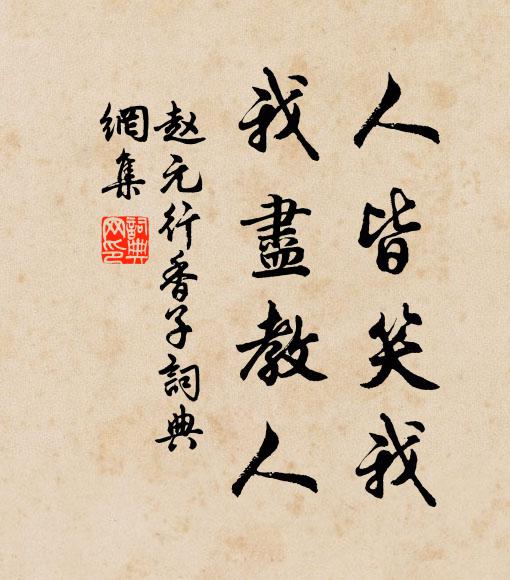 人皆笑我
我盡教人
赵元行香子詞典
網集
詞典
网印